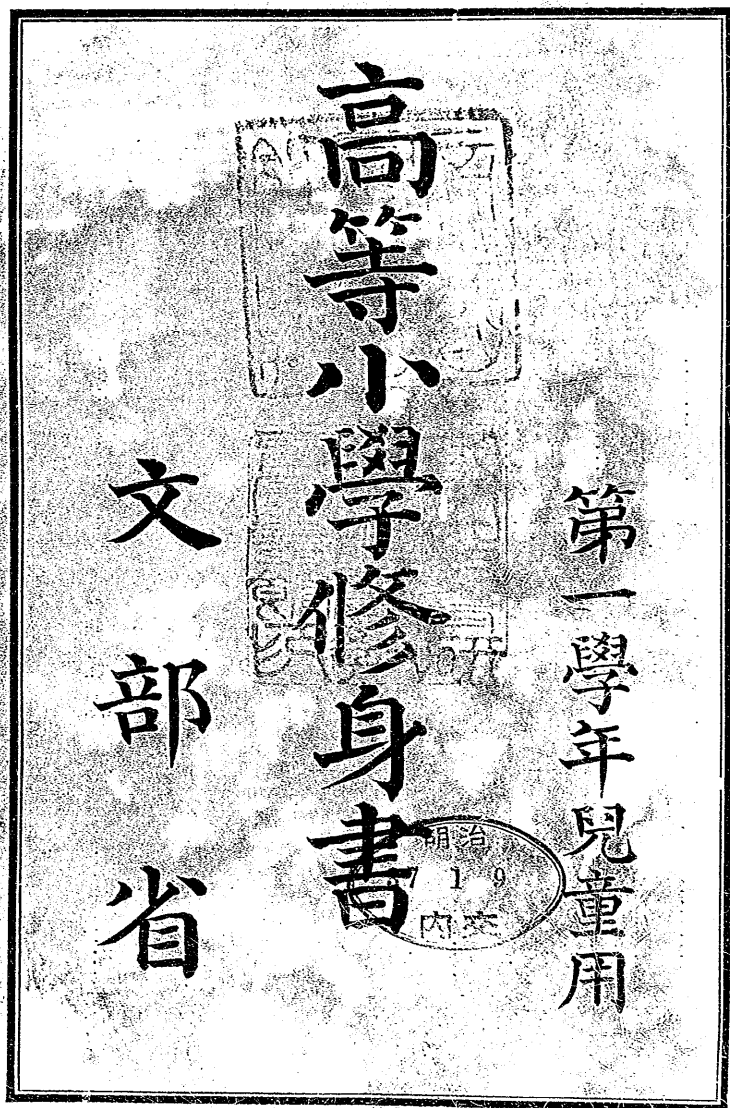 第一學年兒童用
高等小學修身書
文部省
明治
7 1 9
内交